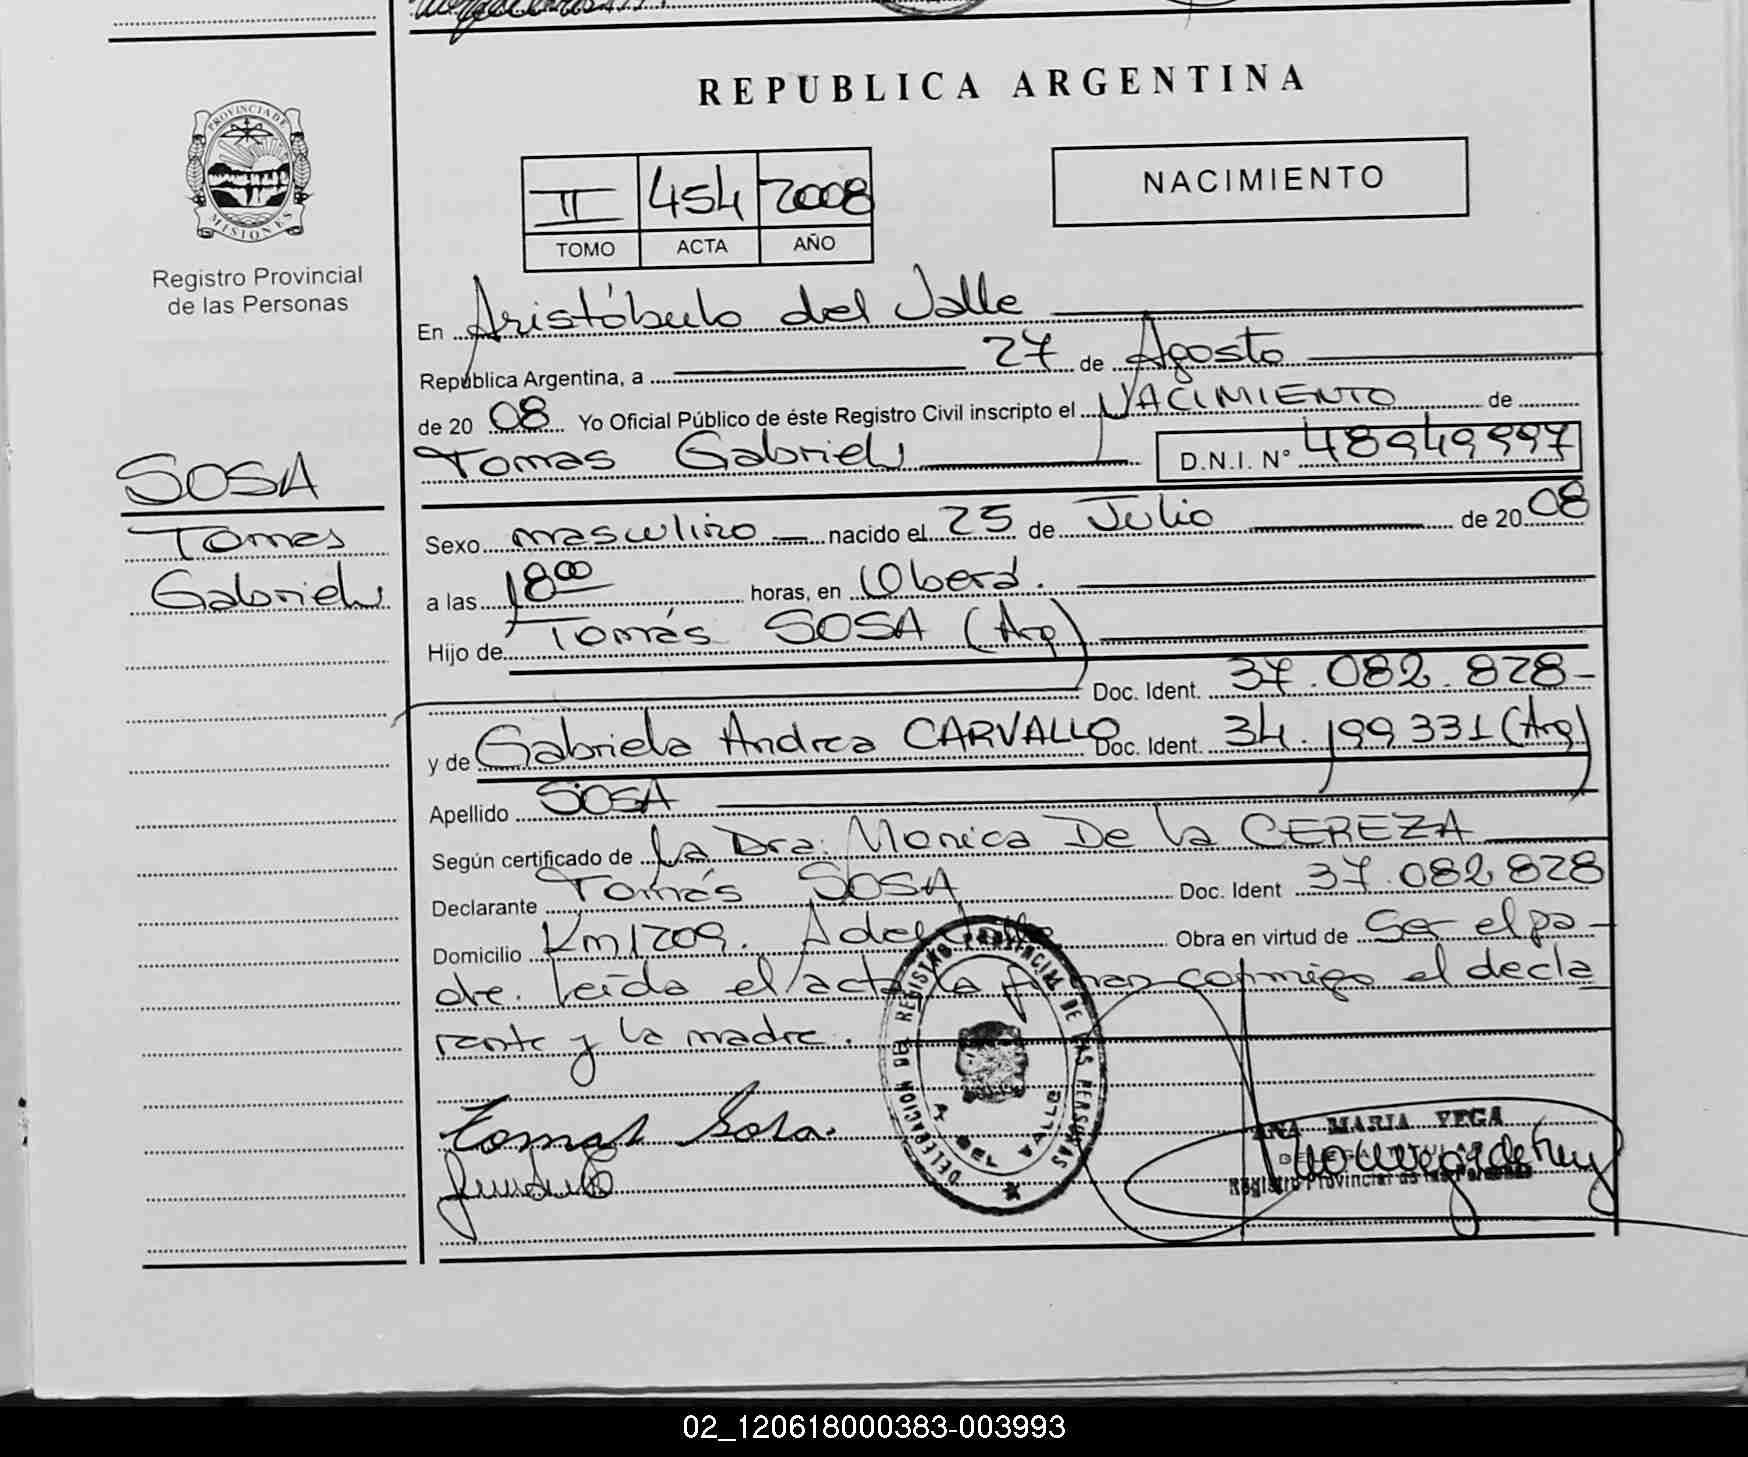 REPUBLICA ARGENTINA
PROVINCIA DE MISIONES
Registro Provincial
de las Personas
II 454 2008
TOMO ACTA AÑO
NACIMIENTO
En Aristóbulo del Valle
República Argentina, a 27 de Agosto
de 20 08 Yo Oficial Público de éste Registro Civil inscripto el NACIMIENTO de
Tomas Gabriel D.N.I. N° 48949997
SOSA
Tomas
Gabriel
Sexo masculino nacido el 25 de Julio de 20 08
a las 18 00 horas, en Oberá.
Hijo de Tomás SOSA (Arg)
Doc. Ident. 37.082.828-
y de Gabriela Andrea CARVALLO Doc. Ident. 34.199331 (Arg)
Apellido SOSA
Según certificado de La Dra: Monica De la CEREZA
Declarante Tomás SOSA Doc. Ident 37.082828
Domicilio Km 1209. A del Valle Obra en virtud de Ser el pa-
dre. Leída el acta la firman conmigo el decla
rante y la madre.
DELEGACION DEL REGISTRO PROVINCIAL DE LAS PERSONAS
A. DEL VALLE
Tomas Sosa.
ANA MARIA VEGA
Registro Provincial de las Personas
02_120618000383-003993